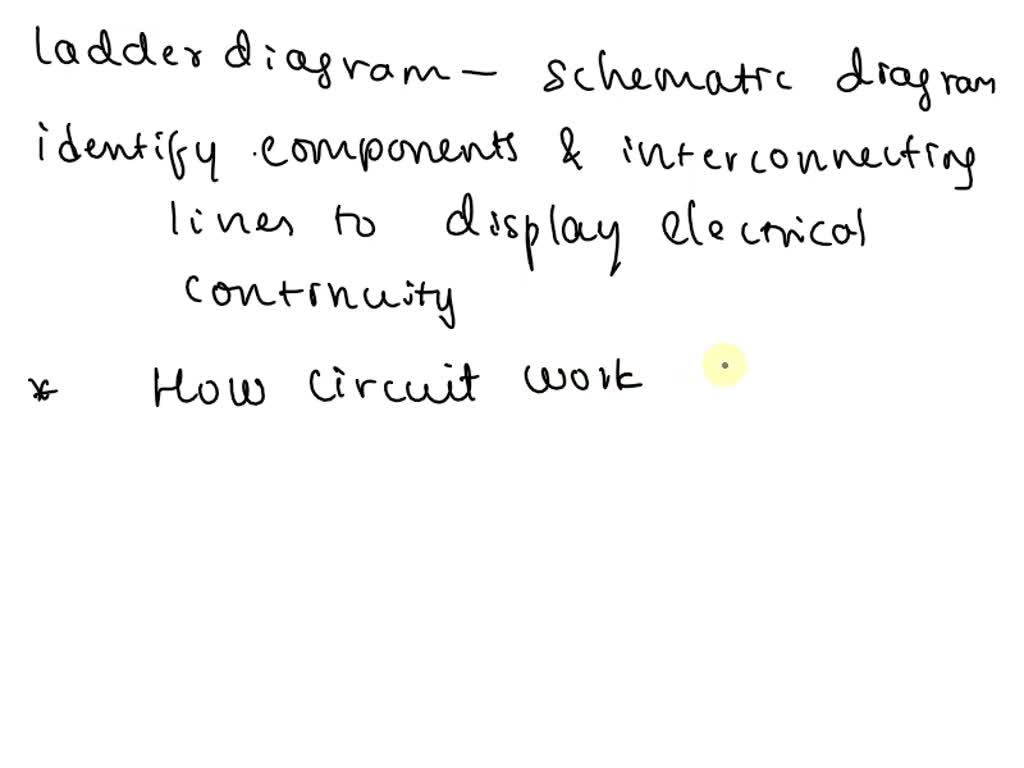 ladder diagram — schematic diagram
identify components & interconnecting
lines to display electrical
continuity
* How circuit work